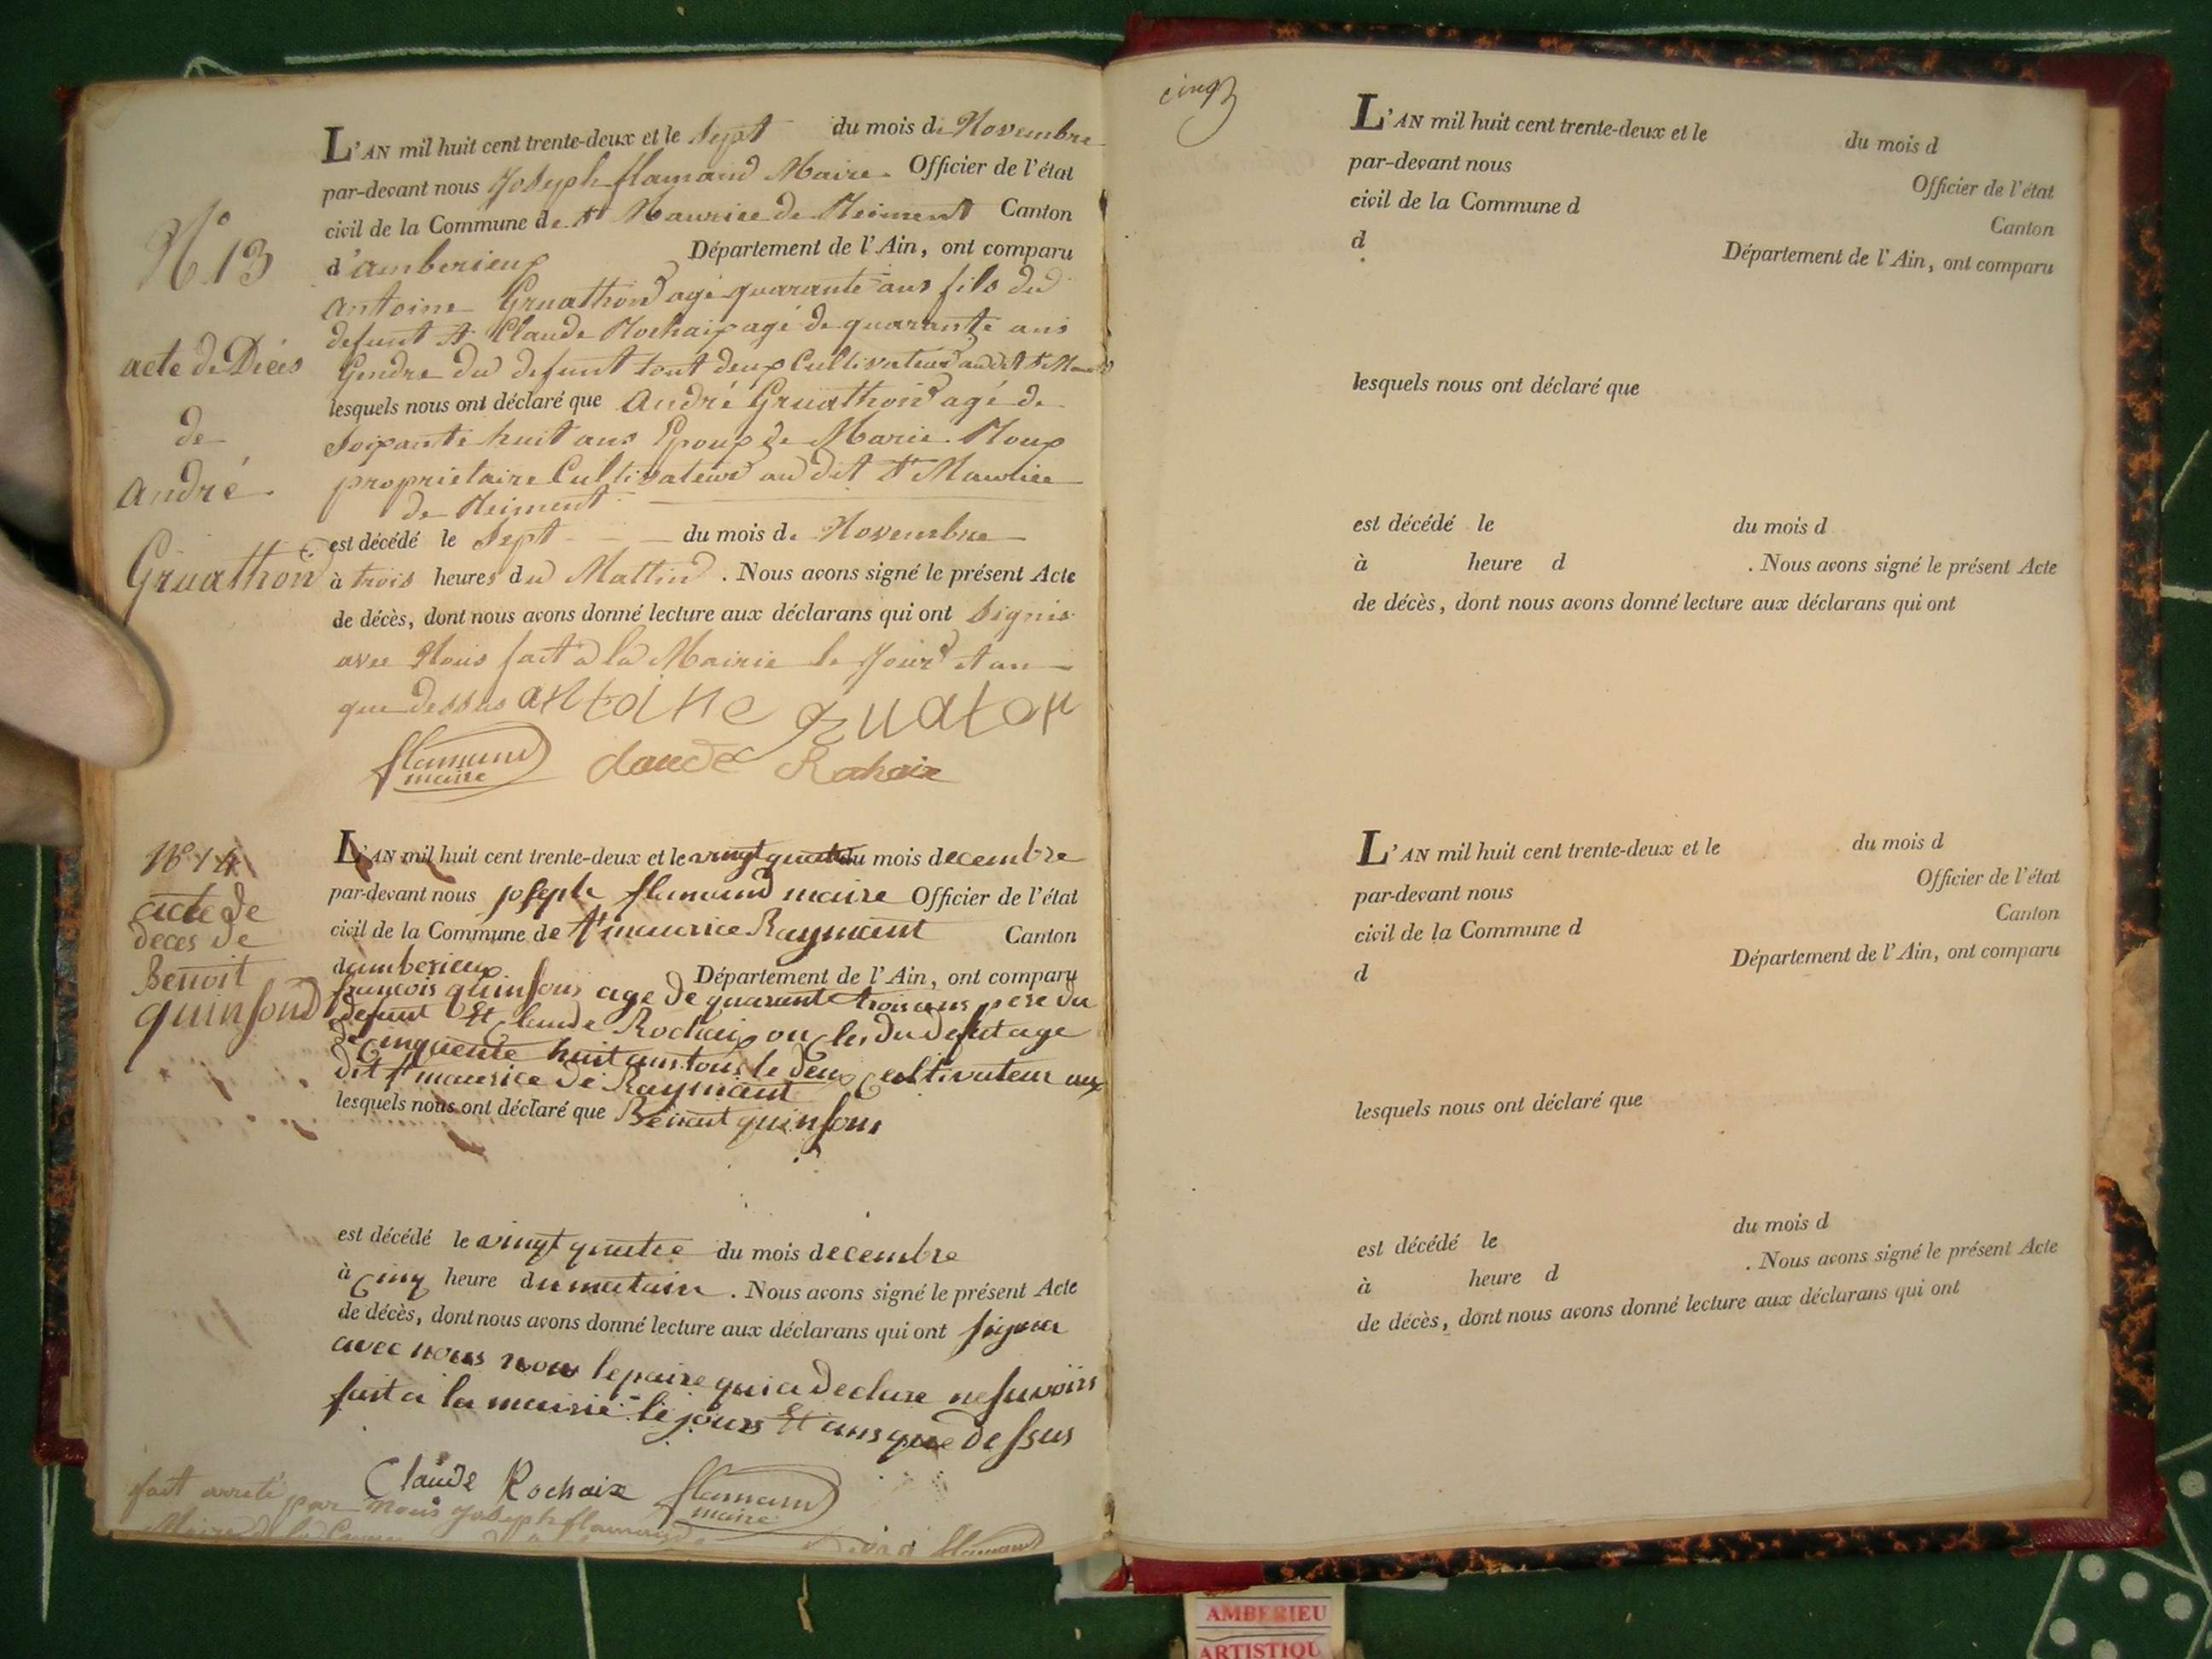 L'AN mil huit cent trente-deux et le Sept du mois de Novembre
par-devant nous Joseph flamand Maire Officier de l'état
civil de la Commune de St Maurice de Reiment Canton
d'amberieux Département de l'Ain, ont comparu
Antoine Gruathon agé quarante ans fils du
defunt et Claude Rochaix agé de quarante ans
Gendre du defunt tout deux Cultivateur audit St
lesquels nous ont déclaré que André Gruathon agé de
Soixante huit ans Epoux de Marie Roux
proprietaire Cultivateur au dit St Maurice
de Reiment
est décédé le Sept du mois de Novembre
à trois heures du Mattin. Nous avons signé le présent Acte
de décès, dont nous avons donné lecture aux déclarans qui ont Signés
avec Nous fait a la Mairie le Jour et an
que dessus antoine gruaton
flamand
maire
claude Rohaix
N° 13
acte de Décés
de
André
Gruathon
L'AN mil huit cent trente-deux et le vingt quatre du mois decembre
par-devant nous joseph flamand maire Officier de l'état
civil de la Commune de St maurice Raymant Canton
damberieux Département de l'Ain, ont comparu
francois quinson age de quarante trois ans pere du
defunt Et Claude Rochaix oncles du defut age
de Cinquente huit ans tous le deux Cultivateur aux
dit St maurice de Raymant
lesquels nous ont déclaré que Benoit quinson
est décédé le vingt quatre du mois decembre
à Cinq heure du matain. Nous avons signé le présent Acte
de décès, dont nous avons donné lecture aux déclarans qui ont signer
avec nous non le paire qui a declare ne savoirs
fait a la mairie le jours Et ans que dessus
Claude Rochaix
flamand
maire
N° 14
acte de
deces de
Benoit
quinsond
fait arreté par nous joseph flamand
Maire de la
flamand
cinq
L'AN mil huit cent trente-deux et le du mois d
par-devant nous Officier de l'état
civil de la Commune d Canton
d Département de l'Ain, ont comparu
lesquels nous ont déclaré que
est décédé le du mois d
à heure d . Nous avons signé le présent Acte
de décès, dont nous avons donné lecture aux déclarans qui ont
L'AN mil huit cent trente-deux et le du mois d
par-devant nous Officier de l'état
civil de la Commune d Canton
d Département de l'Ain, ont comparu
lesquels nous ont déclaré que
est décédé le du mois d
à heure d . Nous avons signé le présent Acte
de décès, dont nous avons donné lecture aux déclarans qui ont
AMBERIEU
ARTISTIQU